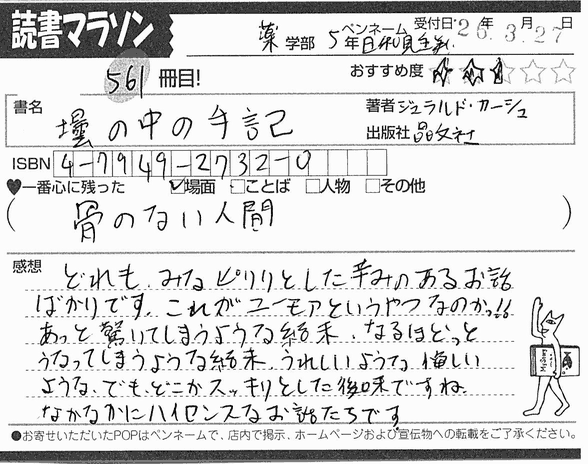 読書マラソン
薬学部 5年 ペンネーム 日和見主義 受付日・26年3月27日
561冊目!
おすすめ度 ★★★☆☆☆
書名 壜の中の手記
著者 ジェラルド・カーシュ
出版社 晶文社
ISBN 4-7949-2732-0
♥一番心に残った ☑場面 □ことば □人物 □その他
( 骨のない人間 )
感想
どれも、みなピリリとした辛みのあるお話
ばかりです。これがユーモアというやつなのかっ!!
あっと驚いてしまうような結末、なるほどっと
うなってしまうような結末、うれしいような、悔しい
ような、でも、どこかスッキリとした後味ですね。
なかなかにハイセンスなお話たちです。
●お寄せいただいたPOPはペンネームで、店内で掲示、ホームページおよび宣伝物への転載をご了承ください。